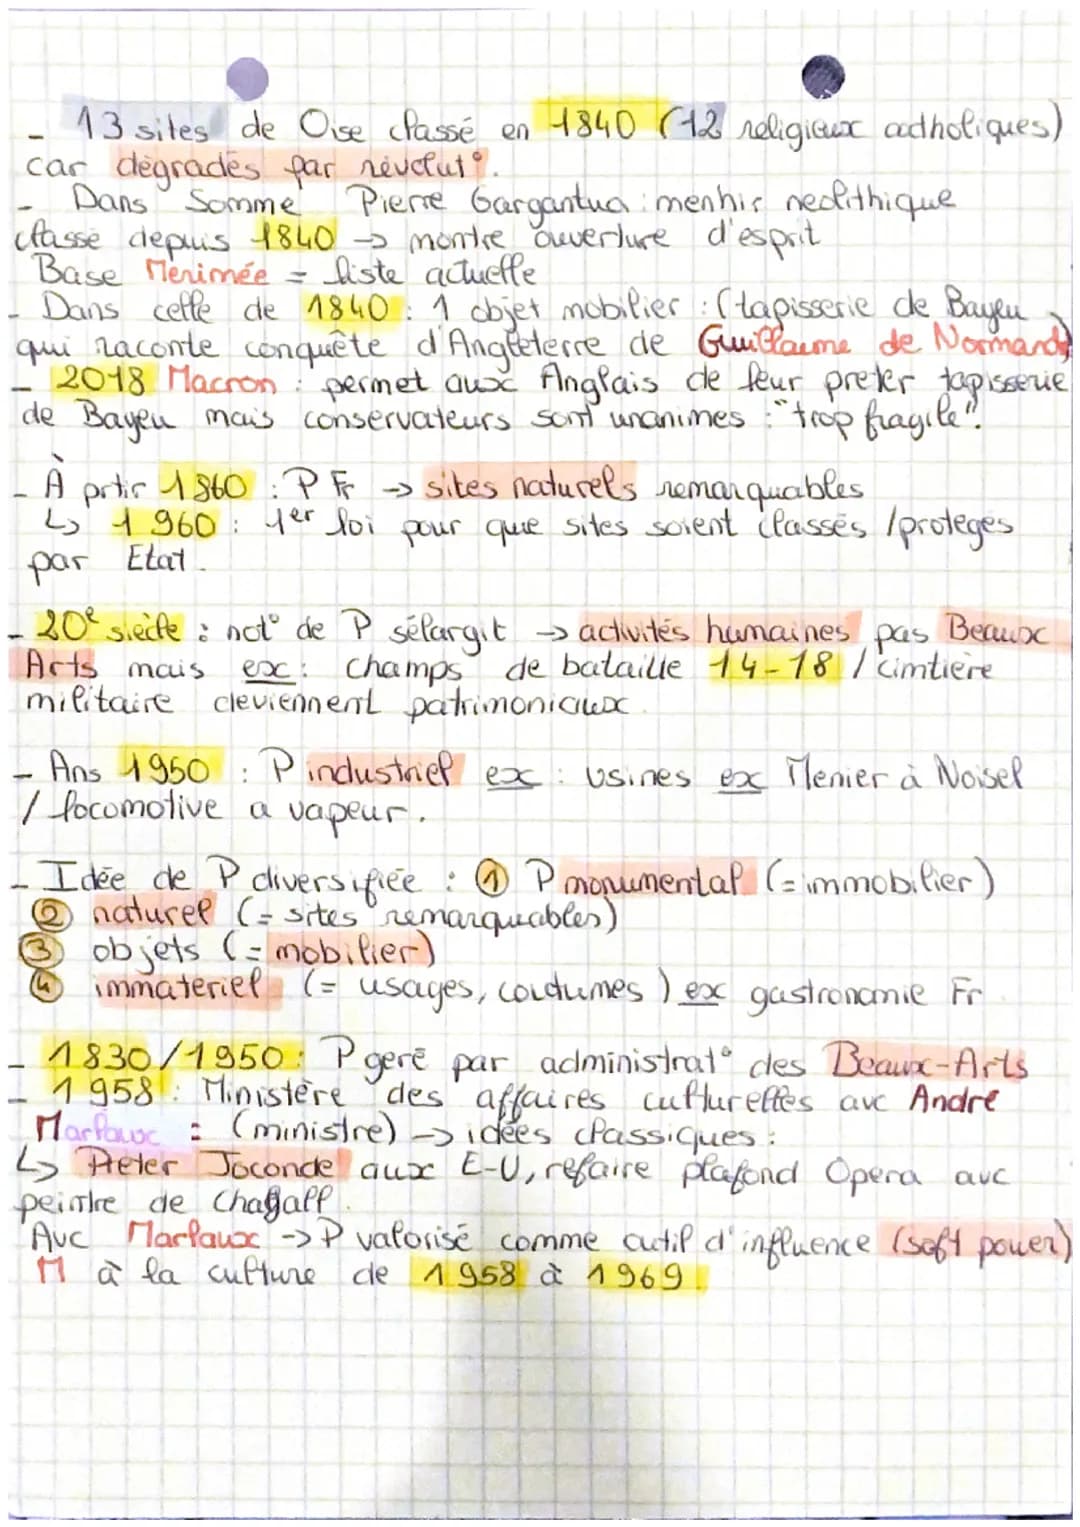 - 13 sites de Oise classé en 1840 (12 religieux catholiques)
car dégradés par révolut°.
- Dans Somme Pierre Gargantua : menhir neolithique
classé depuis 1840 → montre ouverture d'esprit
Base Merimée = liste actuelle
- Dans celle de 1840 : 1 objet mobilier : (tapisserie de Bayeu
qui raconte conquête d'Angleterre de Guillaume de Normandy)
- 2018 Macron : permet aux Anglais de leur preter tapisserie
de Bayeu mais conservateurs sont unanimes : "trop fragile".
- À prtir 1860 : P Fr → sites naturels remarquables
↳ 1960 : 1er loi pour que sites soient classés / proteges
par Etat.
- 20e siecle : not° de P sélargit → activités humaines pas Beaux
Arts mais ex : champs de bataille 14-18 / cimtière
militaire deviennent patrimoniaux.
- Ans 1950 : P industriel ex : usines ex Menier à Noisel
/ locomotive a vapeur.
- Idée de P diversifiée : ① P monumental (= immobilier)
② naturel (= sites remarquables)
③ objets (= mobilier)
④ immateriel (= usages, coutumes) ex gastronomie Fr
- 1830/1950 : P geré par administrat° des Beaux-Arts
- 1958 : Ministère des affaires culturelles avc André
Marlaux = (ministre) → idées classiques :
↳ Preter Joconde aux E-U, refaire plafond Opera avc
peintre de Chagall.
Avc Marlaux → P valorisé comme outil d'influence (soft power)
M à la culture de 1958 à 1969.